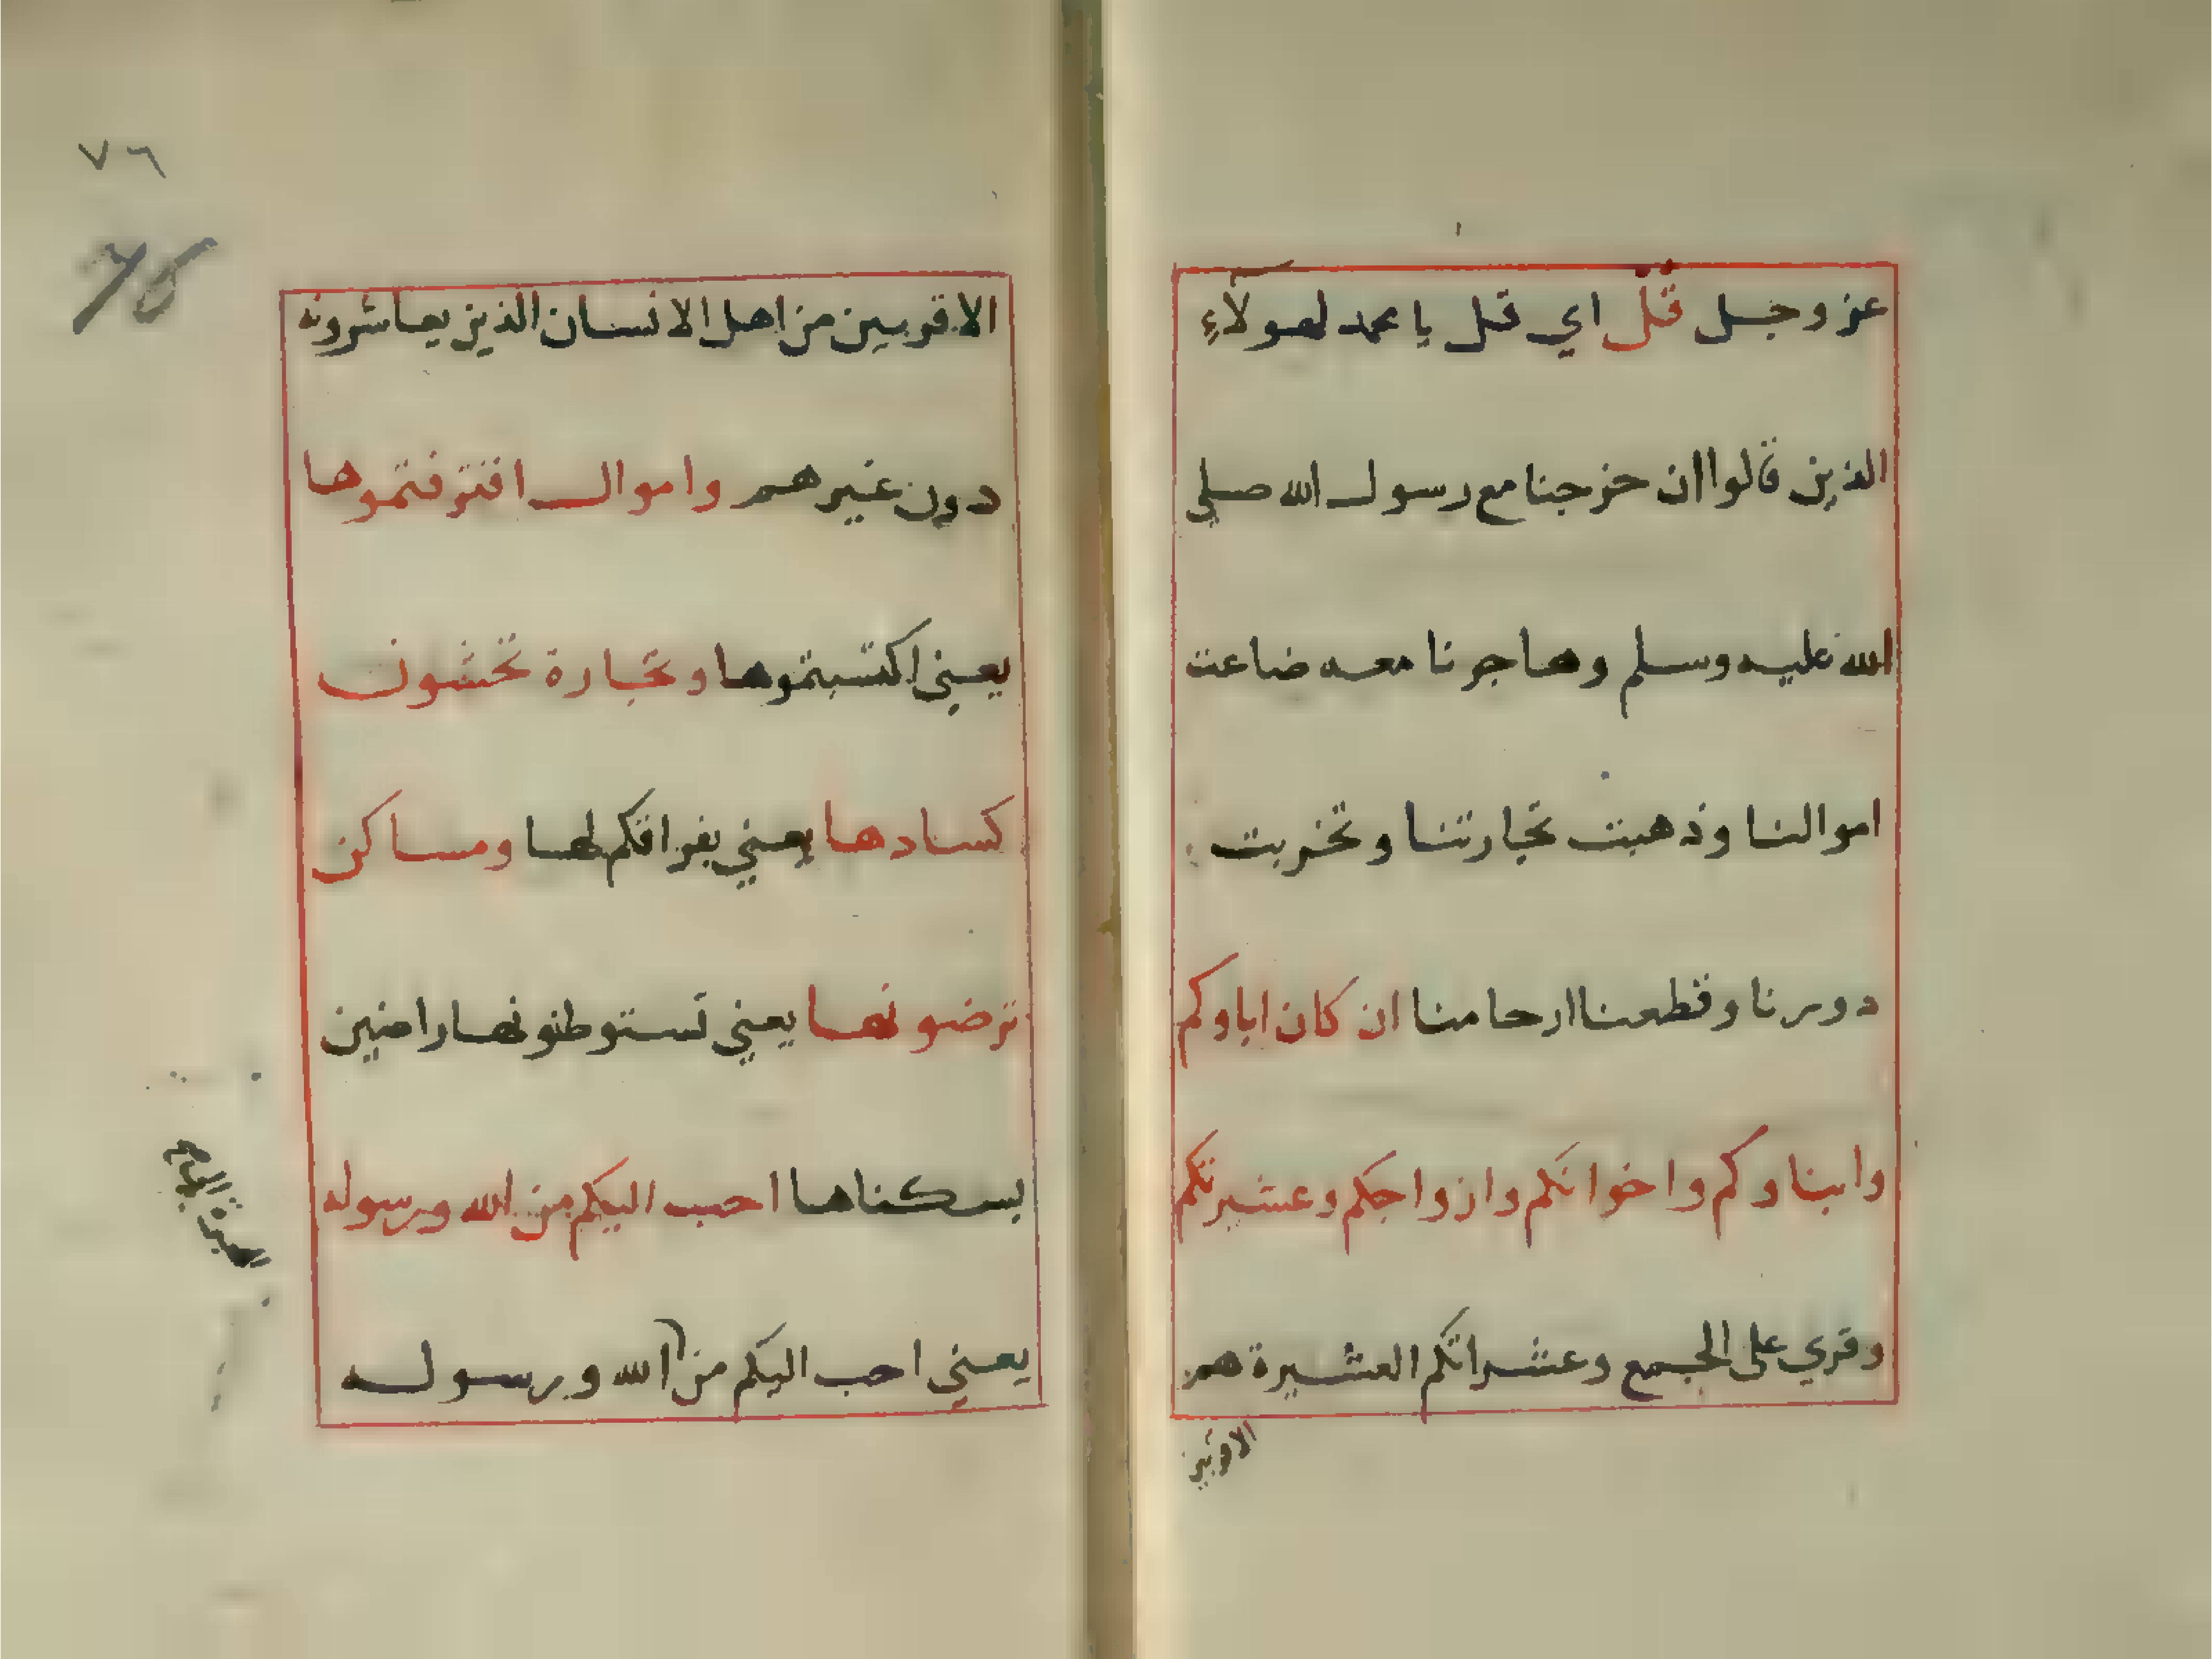 عز وجل قل اي قل يا محمد لهولاء
الذين قالوا ان خرجنا مع رسول الله صلي
الله عليه وسلم وهاجرنا معه ضاعت
اموالنا وذهبت تجارتنا وتخربت
دورنا وقطعنا ارحامنا ان كان اباوكم
وابناوكم واخوانكم وازواجكم وعشيرتكم
وقري على الجمع وعشيراتكم العشيرة هم
الاقربين
٧٦
76
الاقربين من اهل الانسان الذين يعاشرونه
دون غيرهم واموال اقترفتموها
يعني اكتسبتموها وتجارة تخشون
كسادها يعني بفراقكم لها ومساكن
ترضونها يعني تستوطنونها راضين
بسكناها احب اليكم من الله ورسوله
يعني احب اليكم من الله ورسوله